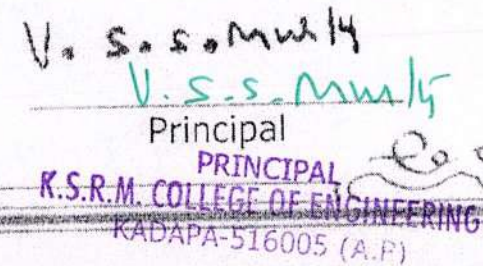 V. S. S. Murly
V. S. S. Murly
Principal
PRINCIPAL
K.S.R.M. COLLEGE OF ENGINEERING
KADAPA-516005 (A.P)